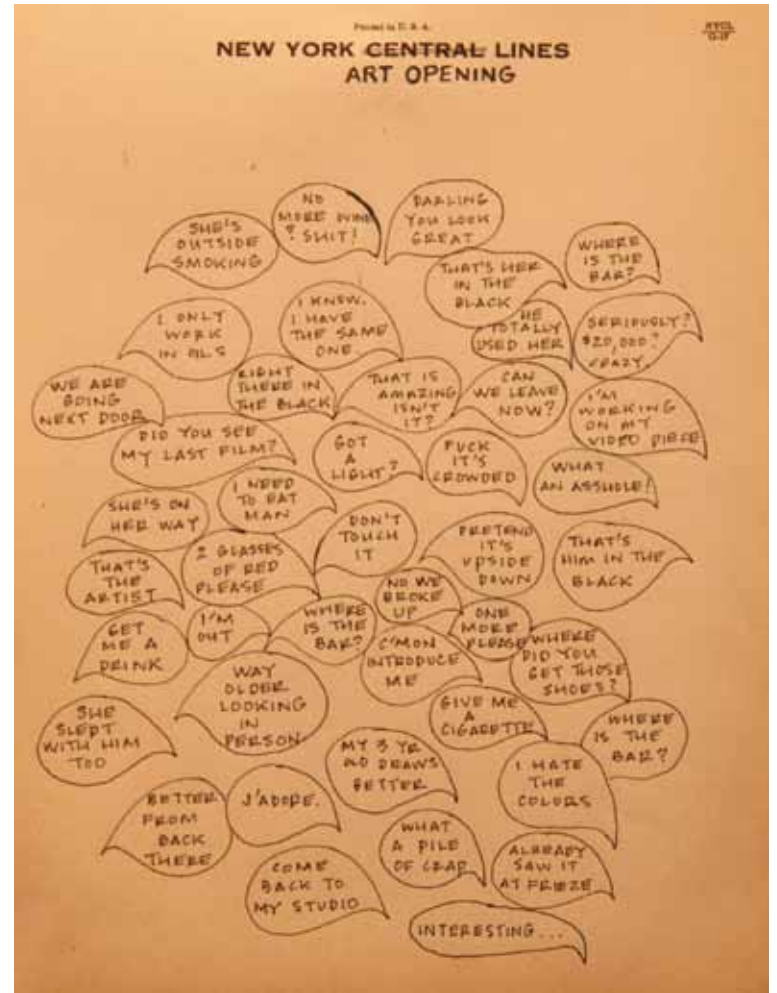 Printed in U. S. A.
NEW YORK CENTRAL LINES
ART OPENING
SHE'S
OUTSIDE
SMOKING
NO
MORE WINE
? SHIT!
DARLING
YOU LOOK
GREAT
THAT'S HER
IN THE
BLACK
WHERE
IS THE
BAR?
I ONLY
WORK
IN OILS
I KNOW.
I HAVE
THE SAME
ONE.
HE
TOTALLY
USED HER
SERIOUSLY?
$20,000?
CRAZY.
WE ARE
GOING
NEXT DOOR
RIGHT
THERE IN
THE BLACK
THAT IS
AMAZING
ISN'T
IT?
CAN
WE LEAVE
NOW?
I'M
WORKING
ON MY
VIDEO PIECE
DID YOU SEE
MY LAST FILM?
GOT
A
LIGHT?
FUCK
IT'S
CROWDED
WHAT
AN ASSHOLE!
SHE'S ON
HER WAY
I NEED
TO EAT
MAN
DON'T
TOUCH
IT
PRETEND
IT'S
UPSIDE
DOWN
THAT'S
HIM IN THE
BLACK
THAT'S
THE
ARTIST
2 GLASSES
OF RED
PLEASE
NO WE
BROKE
UP
GET
ME A
DRINK
I'M
OUT
WHERE
IS THE
BAR?
C'MON
INTRODUCE
ME
ONE
MORE
PLEASE
WHERE
DID YOU
GET THOSE
SHOES?
SHE
SLEPT
WITH HIM
TOO
WAY
OLDER
LOOKING
IN
PERSON
GIVE ME
A
CIGARETTE
WHERE
IS THE
BAR?
MY 3 YR
OLD DRAWS
BETTER
I HATE
THE
COLORS
BETTER
FROM
BACK
THERE
J'ADORE.
WHAT
A PILE
OF CRAP
ALREADY
SAW IT
AT FRIEZE
COME
BACK TO
MY STUDIO
INTERESTING...